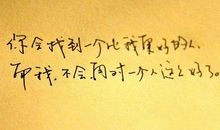 你会找到一个比我更好的人.
而我.不会再对一个人这么好了。